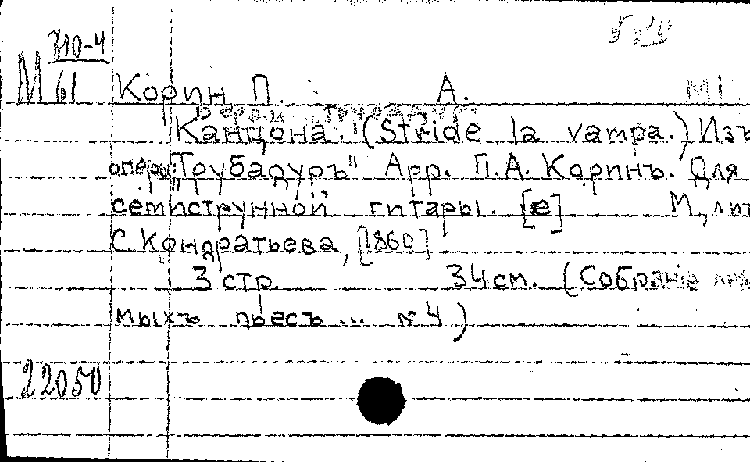 М 310-4
61 Корин П. А. Mi
"Канцона." (Stride la vampa.) Изъ
оперы "Трубадуръ" Арр. П.А. Коринъ. Для
семиструнной гитары. [e] М., лит
С. Кондратьева, [1860]
3 стр 34 см. (Собрание
мыхъ пьесъ ... № 4)
22050